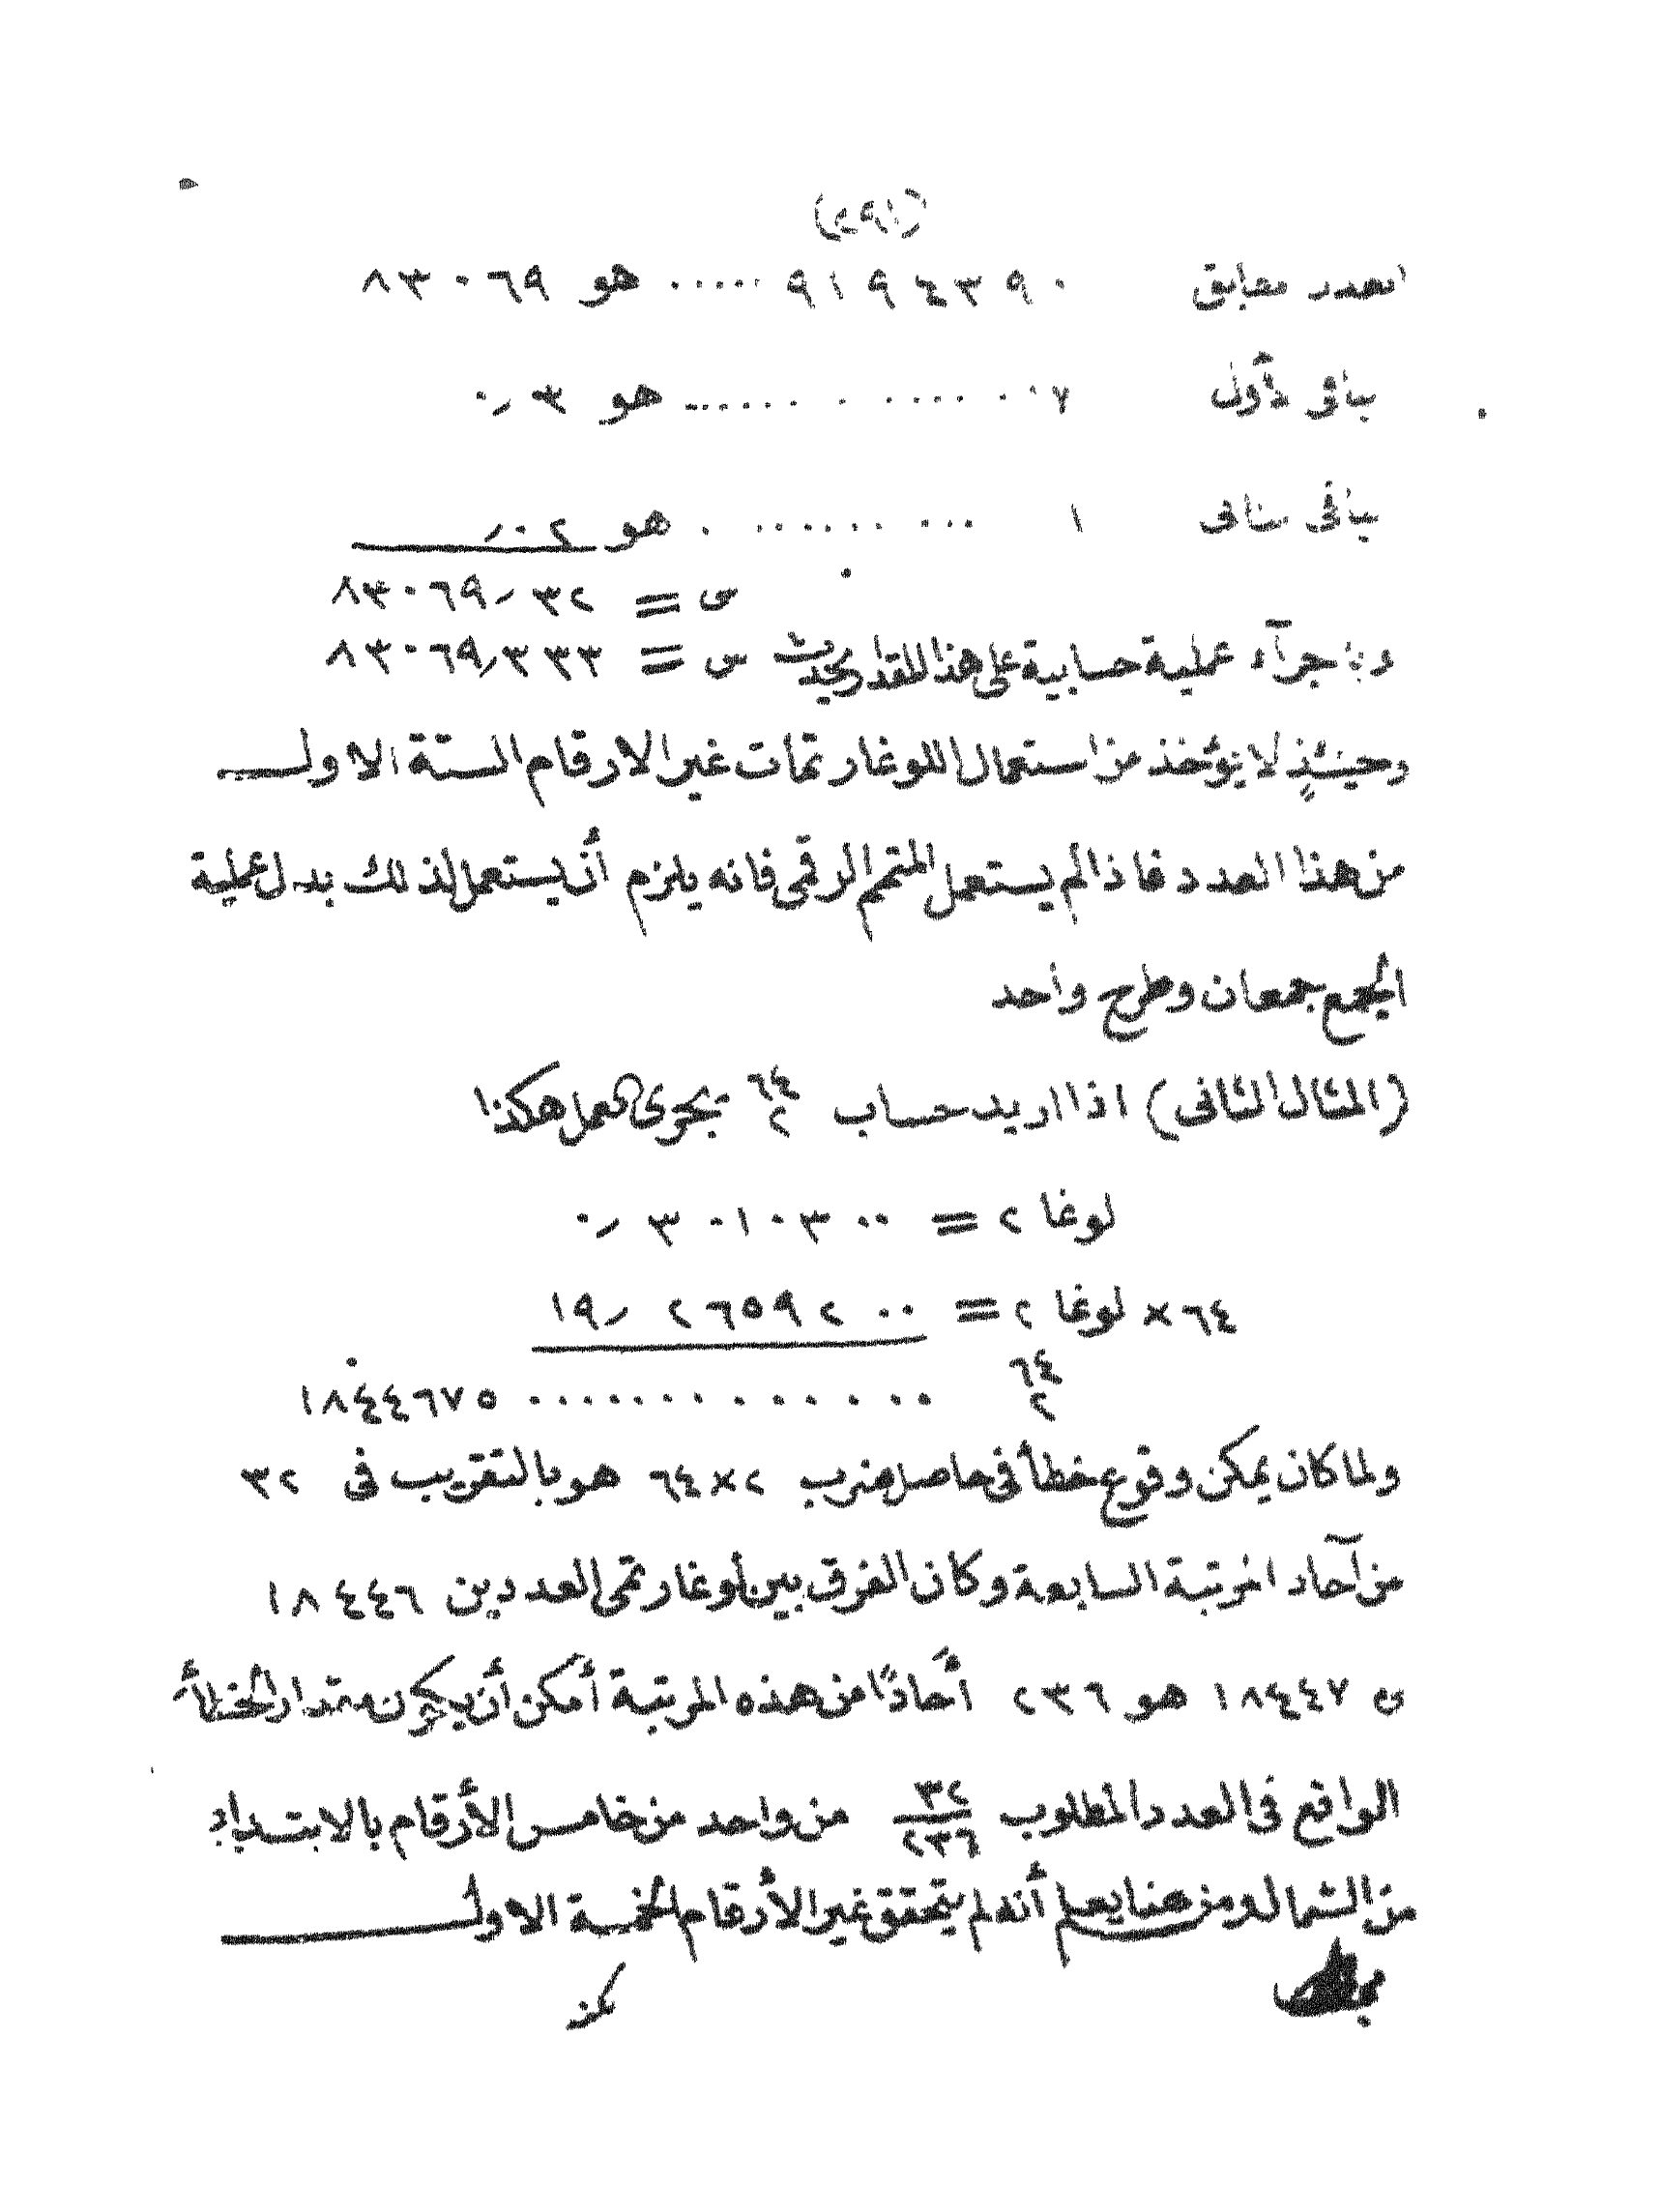 (٢٩١)
العدد مقابق ٩١٩٤٣٩٠ ..... هو ٨٣٠٦٩
باقى أول ٧ ............. هو ٠٫٣
باقى ثانى ١ ........... هو ٠٢٫
س = ٨٣٠٦٩٫٣٢
وباجرآء عملية حسابية على هذا المقدار يحدث س = ٨٣٠٦٩٫٣٣٣
وحينئذٍ لا يؤخذ من استعمال اللوغارتمات غير الارقام الستة الاول
من هذا العدد فاذا لم يستعمل المتمم الرقمى فانه يلزم أن يستعمل لذلك بدل عملية
الجمع جمعان وطرح واحد
(المثال الثانى) اذا اريد حساب ٢^٦٤ يجرى العمل هكذا
لوغا ٢ = ٠٫٣٠١٠٣٠٠
٦٤ × لوغا ٢ = ١٩٫٢٦٥٩٢٠٠
٢^٦٤ ............. ١٨٤٤٦٧٥
ولما كان يمكن وقوع خطأ فى حاصل ضرب ٢×٦٤ هو بالتقريب فى ٣٢
من آحاد المرتبة السابعة وكان الفرق بين لوغارتمى العددين ١٨٤٤٦
ى ١٨٤٤٧ هو ٢٣٦ أحادًا من هذه المرتبة أمكن أن يكون مقدار الخطأ
الواقع فى العدد المطلوب ٣٢/٢٣٦ من واحد من خامس الأرقام بالابتداء
من الشمال ومن هنا يعلم أنه لم يتحقق غير الأرقام الخمسة الاول